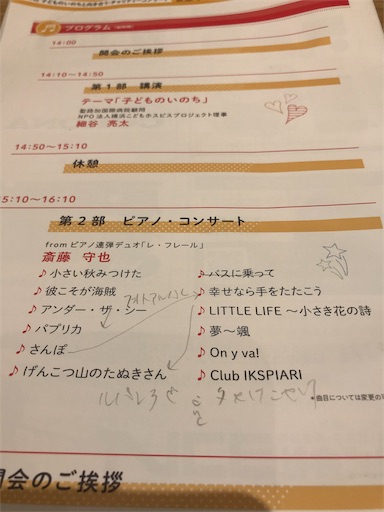 プログラム
14:00
開会のご挨拶
14:10〜14:50
第1部 講演
テーマ「子どものいのち」
聖路加国際病院顧問
NPO法人横浜こどもホスピスプロジェクト理事
細谷 亮太
14:50〜15:10
休憩
15:10〜16:10
第2部 ピアノ・コンサート
fromピアノ連弾デュオ「レ・フレール」
斎藤 守也
♪小さい秋みつけた
♪彼こそが海賊
♪アンダー・ザ・シー
♪パプリカ
♪さんぽ
♪げんこつ山のたぬきさん
♪バスに乗って
♪幸せなら手をたたこう
♪LITTLE LIFE 〜小さき花の詩
♪夢〜颯
♪On y va!
♪Club IKSPIARI
*曲目については変更の可
開会のご挨拶